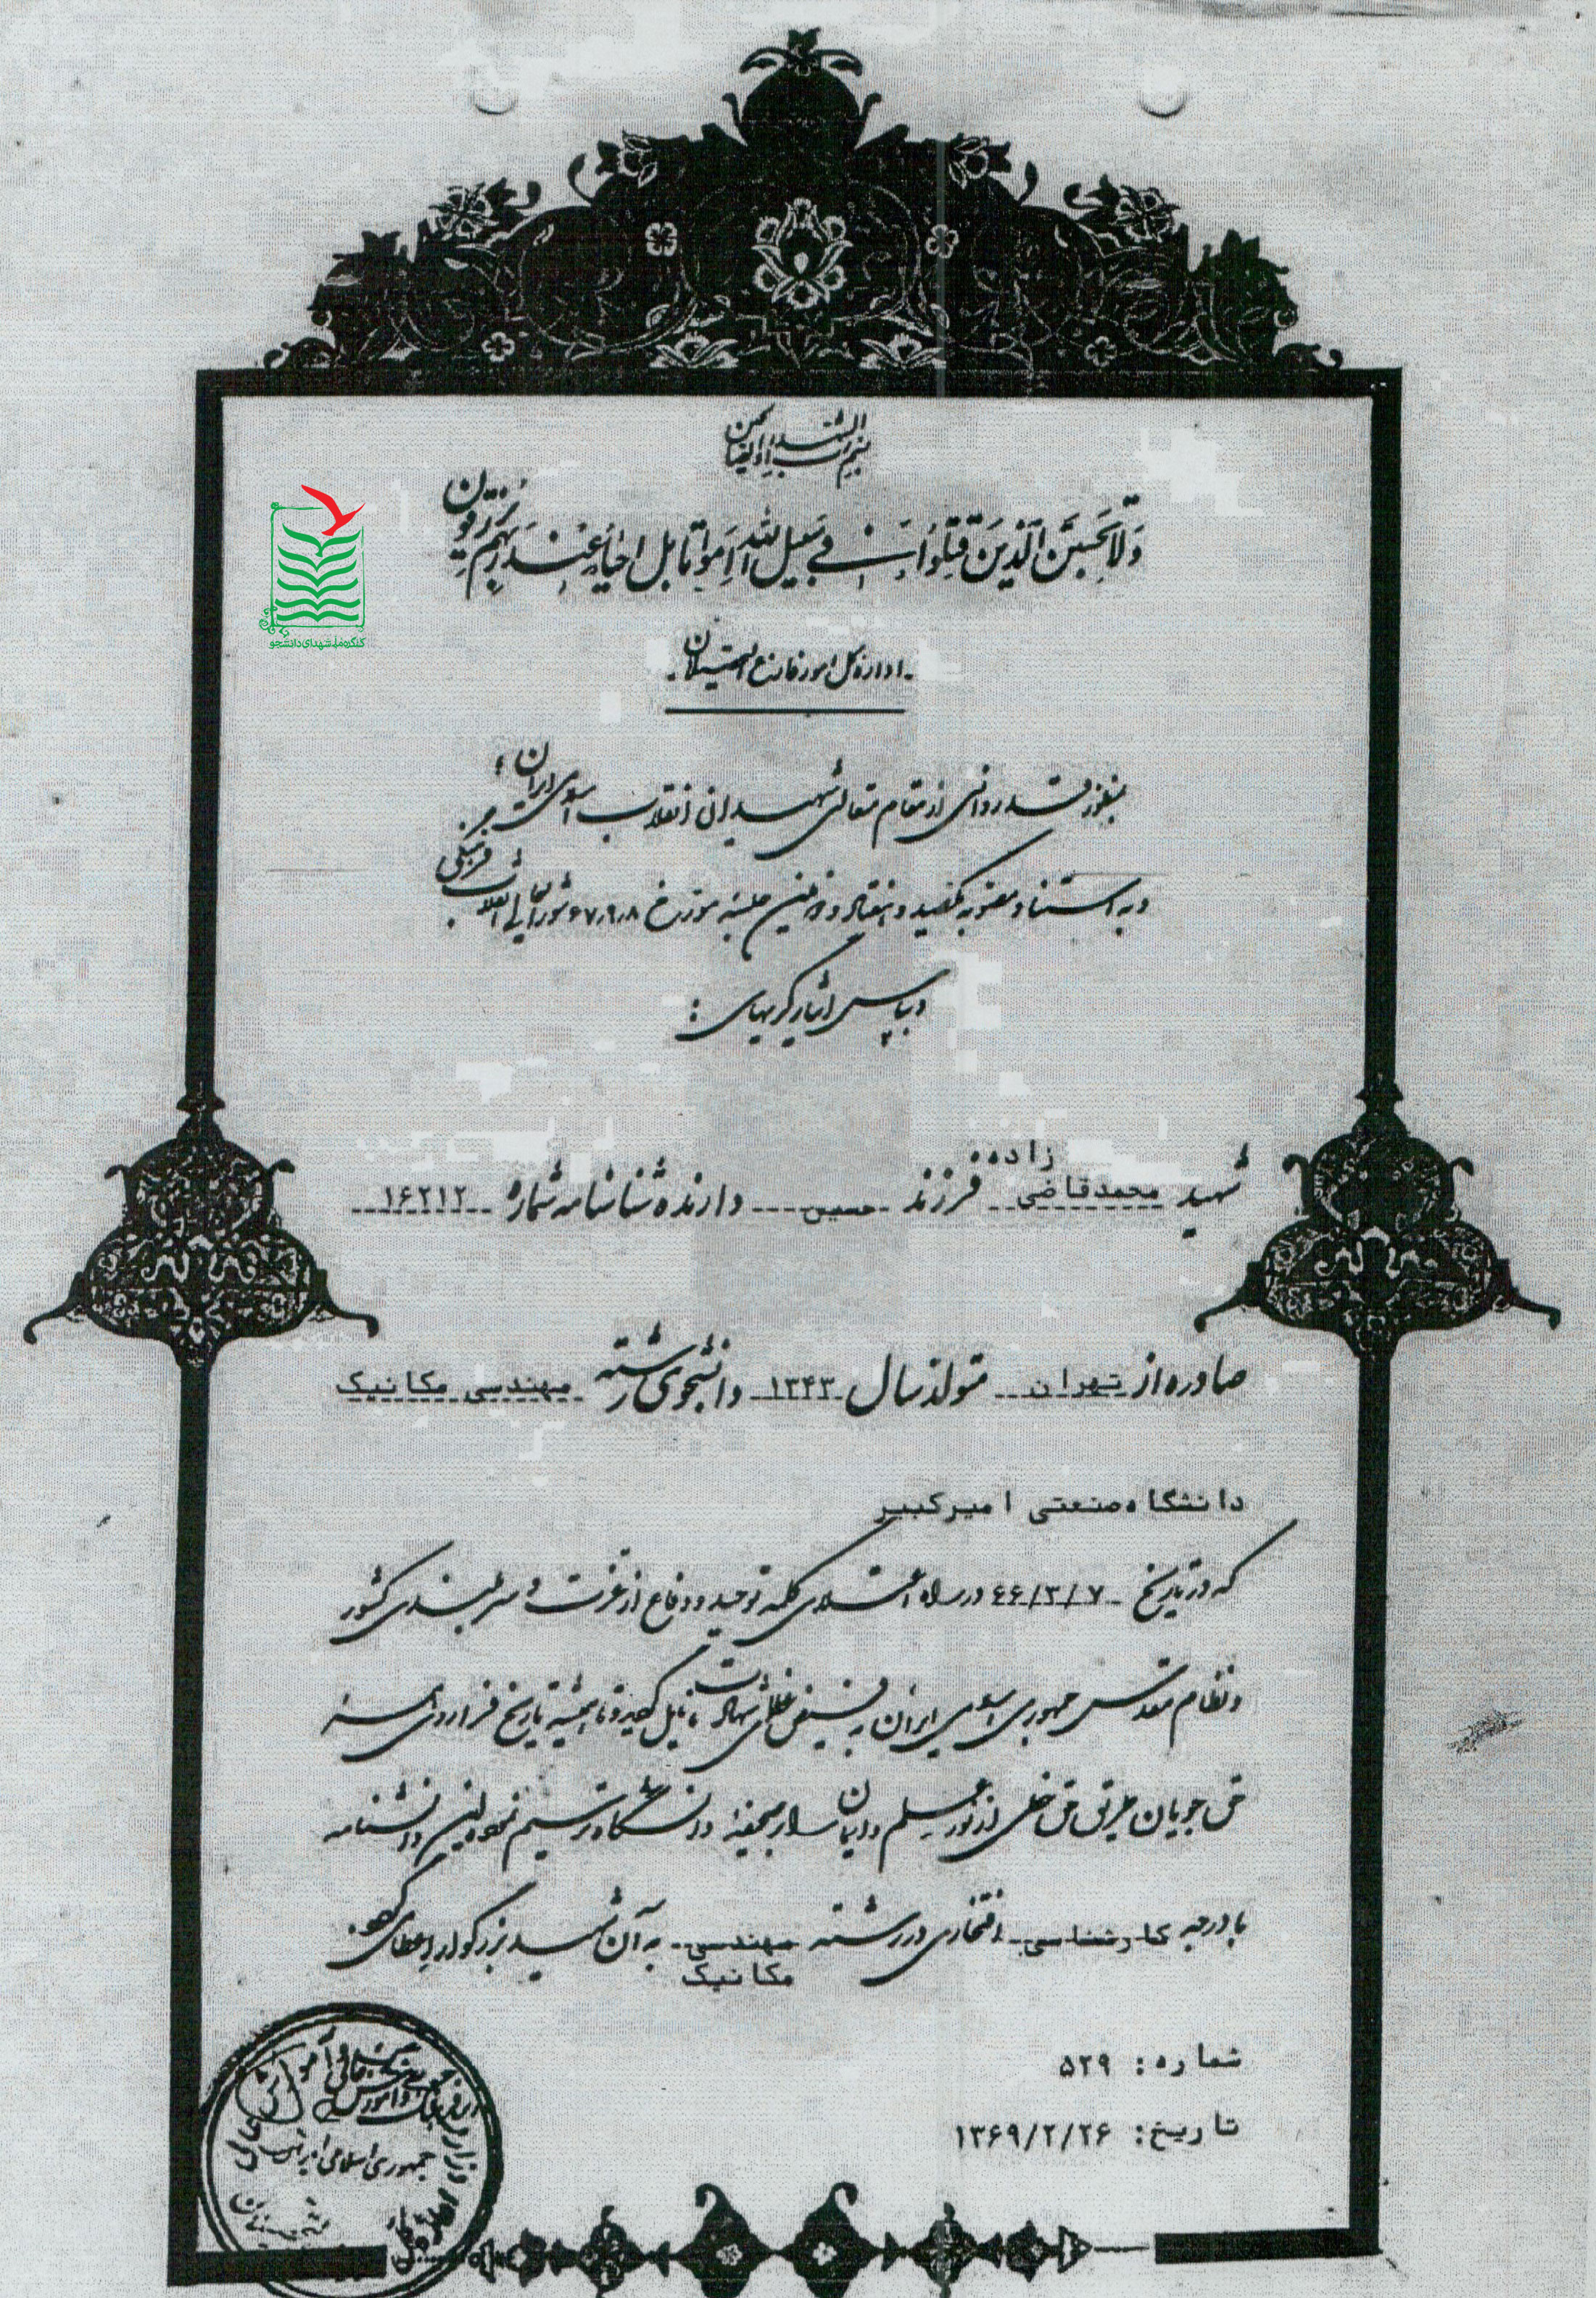 بسم رب الشهداء و الصالحین
وَلا تَحسَبَنَّ الَّذینَ قُتِلوا فی سَبیلِ اللهِ اَمواتا بَل اَحیاءٌ عِندَ رَبِّهِم یُرزَقون
کنگره ملی شهدای دانشجو
اداره کل امور فارغ التحصیلان
بمنظور قدردانی از مقام متعالی شهیدان انقلاب اسلامی ایران،
و به استناد مصوبه یکصد و هفتاد و دومین جلسه مورخ ۶۷٫۹٫۸ شورایعالی انقلاب فرهنگی
و بپاس ایثارگریهای :
شهید محمد قاضی زاده فرزند حسین دارنده شناسنامه شماره ۱۶۲۱۲
صادره از تهران متولد سال ۱۳۴۳ دانشجوی رشته مهندسی مکانیک
دانشگاه صنعتی امیرکبیر
که در تاریخ ۶۶/۳/۷ در راه اعتلای کلمه توحید و دفاع از عزت و سربلندی کشور
و نظام مقدس جمهوری اسلامی ایران به فیض عظمای شهادت نایل گردید و تا همیشه تاریخ فرا روی همه
حق جویان طریق حق خطی از نور علم و ایمان را بر صحیفه دانشگاه ترسیم نمود این دانشنامه
با درجه کارشناسی افتخاری در رشته مهندسی مکانیک به آن شهید بزرگوار اعطا می گردد.
شماره: ۵۲۹
تاریخ: ۱۳۶۹/۲/۲۶
جمهوری اسلامی ایران